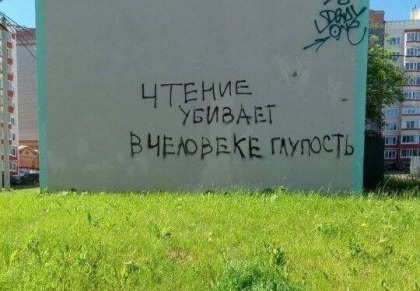 ЧТЕНИЕ
УБИВАЕТ
В ЧЕЛОВЕКЕ ГЛУПОСТЬ